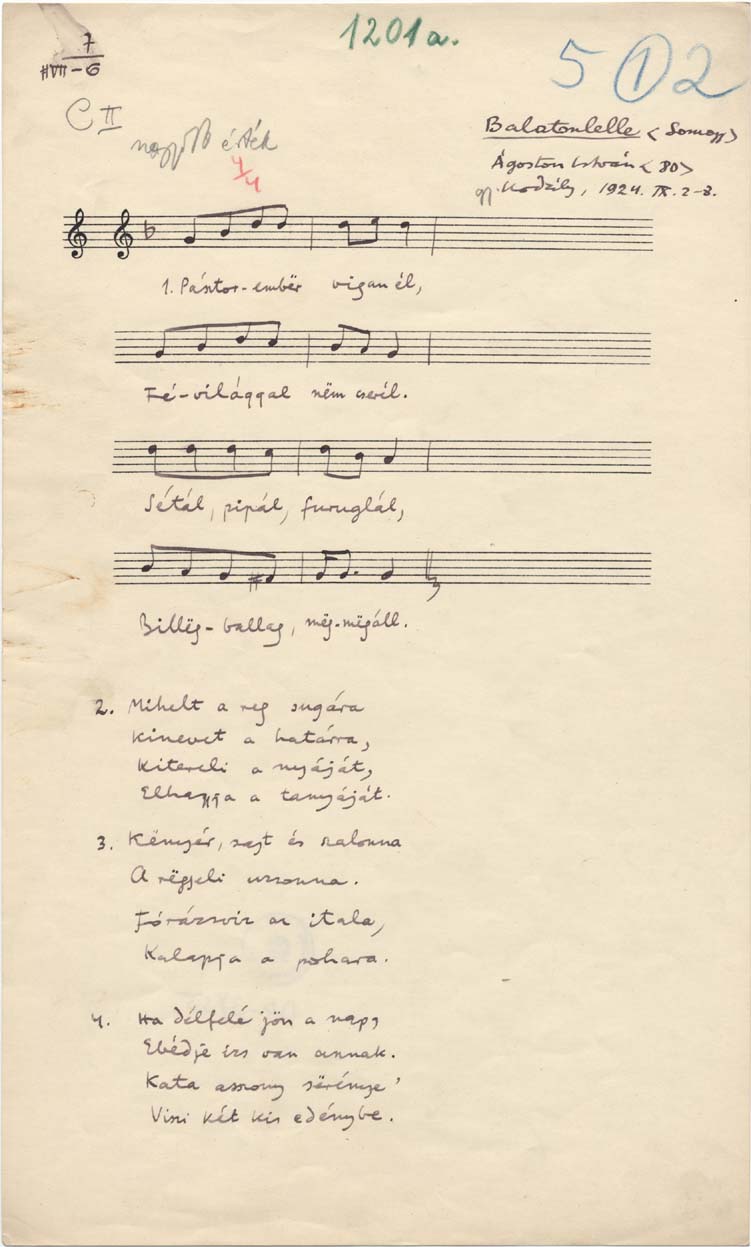 7
HVII-6
1201a.
5 1 2
C II
nagyobb érték
4/4
Balatonlelle <Somogy>
Ágoston István <80>
gy. Kodály, 1924. IX. 2-8.
1. Pásztor-embër vigan él,
Fé-világgal nëm cserél.
Sétál, pipál, furuglál,
Billëg-ballag, mëg-mëgáll.
2. Mihelt a reg sugára
Kinevet a határra,
Kitereli a nyáját,
Elhaggya a tanyáját.
3. Kënyér, sajt és szalonna
A rëggeli uzsonna.
Fórázsviz az itala,
Kalapja a pohara.
4. Ha délfelé jön a nap,
Ebédje izs van annak.
Kata asszony sërénye'
Viszi két kis edénybe.